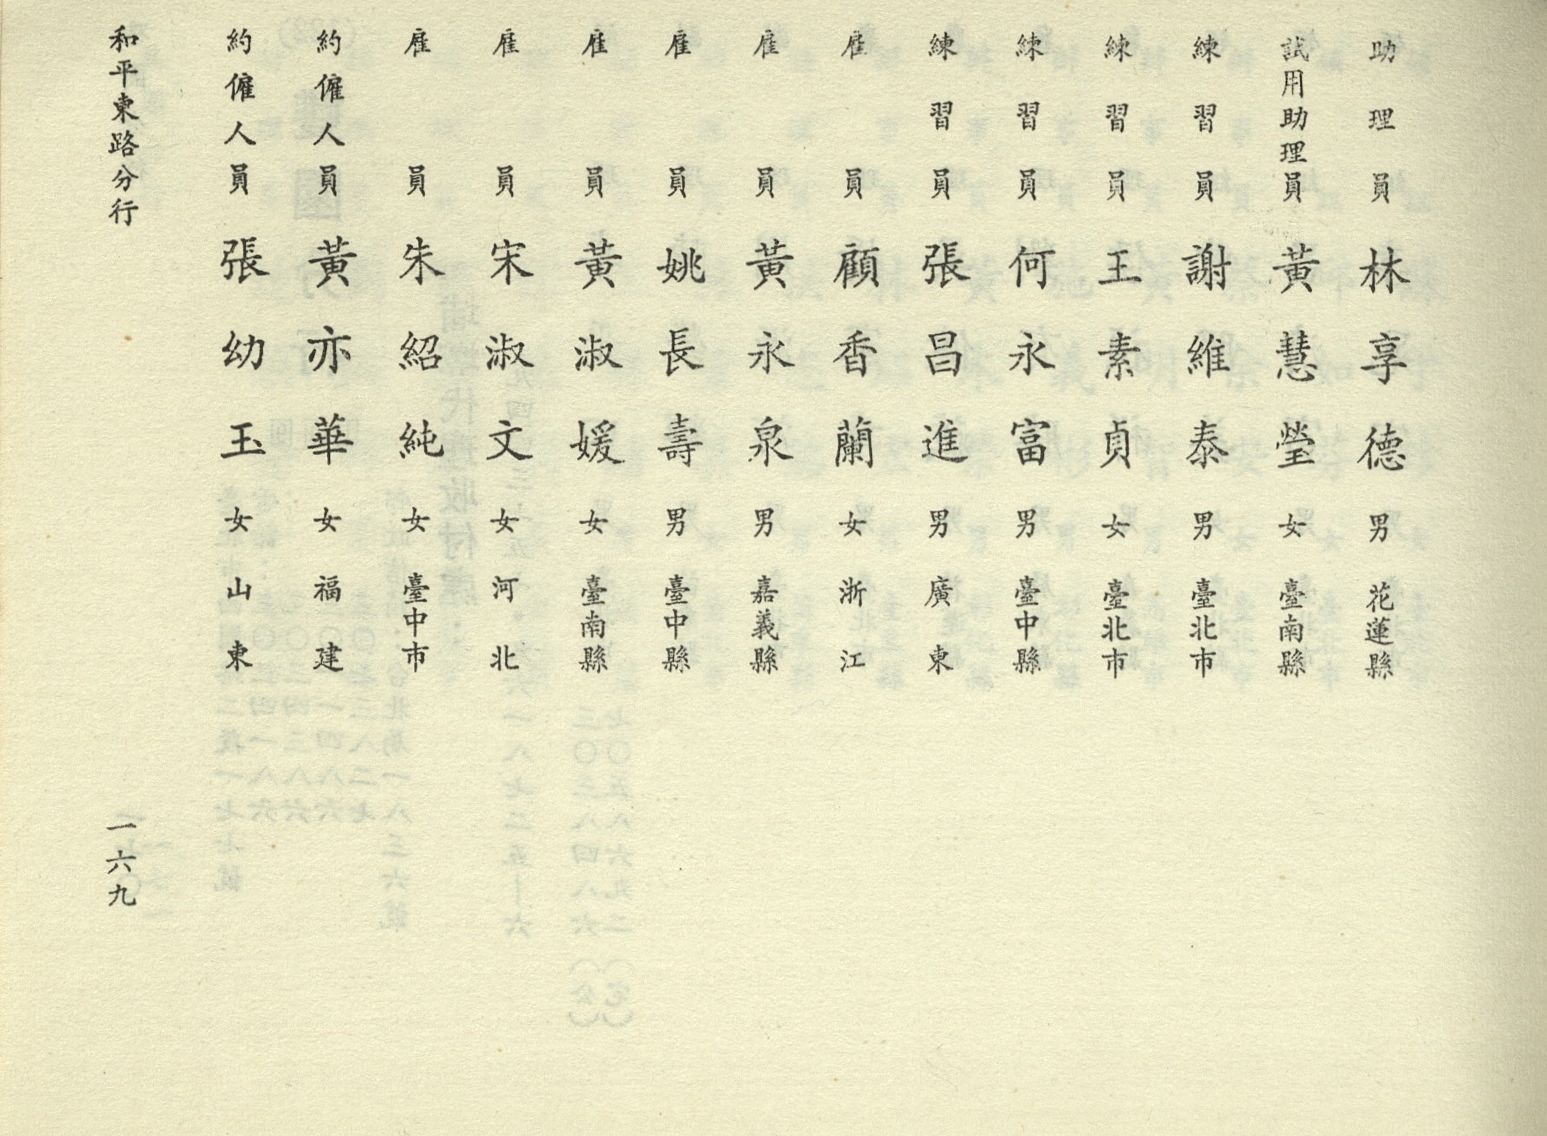 助理員 林享德 男 花蓮縣
試用助理員 黃慧瑩 女 臺南縣
練習員 謝維泰 男 臺北市
練習員 王素貞 女 臺北市
練習員 何永富 男 臺中縣
練習員 張昌進 男 廣東
雇員 顧香蘭 女 浙江
雇員 黃永泉 男 嘉義縣
雇員 姚長壽 男 臺中縣
雇員 黃淑媛 女 臺南縣
雇員 宋淑文 女 河北
雇員 朱紹純 女 臺中市
約僱人員 黃亦華 女 福建
約僱人員 張幼玉 女 山東
和平東路分行
一六九